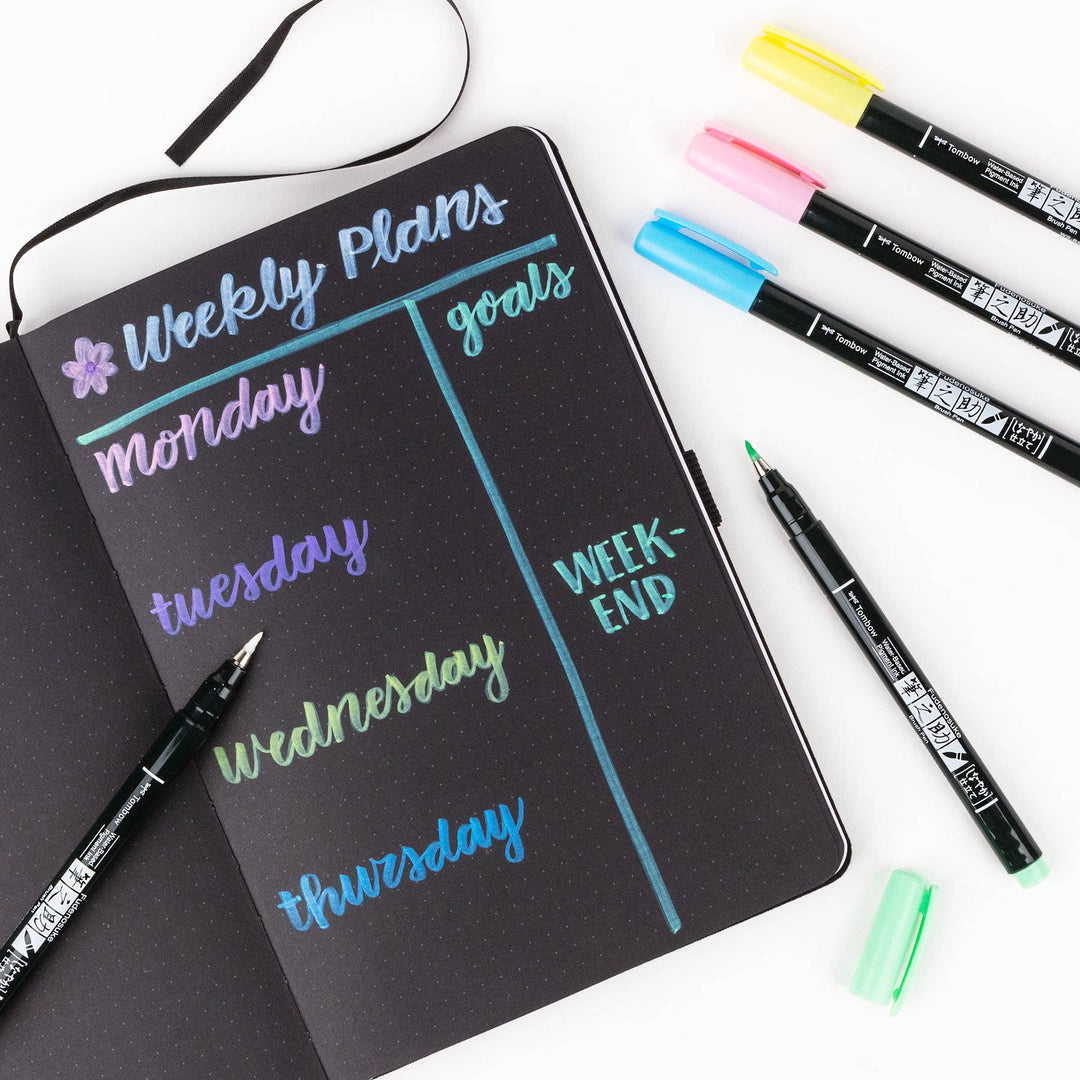 Weekly Plans
goals
monday
tuesday
WEEK-
END
wednesday
thursday
Tombow
Water-Based
Pigment Ink
筆之助
Brush Pen
Tombow
Water-Based
Pigment Ink
Fudenosuke
筆之助
Brush Pen
仕立て
Tombow
Water-Based
Pigment Ink
Fudenosuke
筆之助
Brush Pen
しなやか
仕立て
Tombow
Water-Based
Pigment Ink
Fudenosuke
筆之助
Brush Pen
しなやか
仕立て
Tombow
Water-Based
Pigment Ink
Fudenosuke
筆之助
Brush Pen
しなやか
仕立て